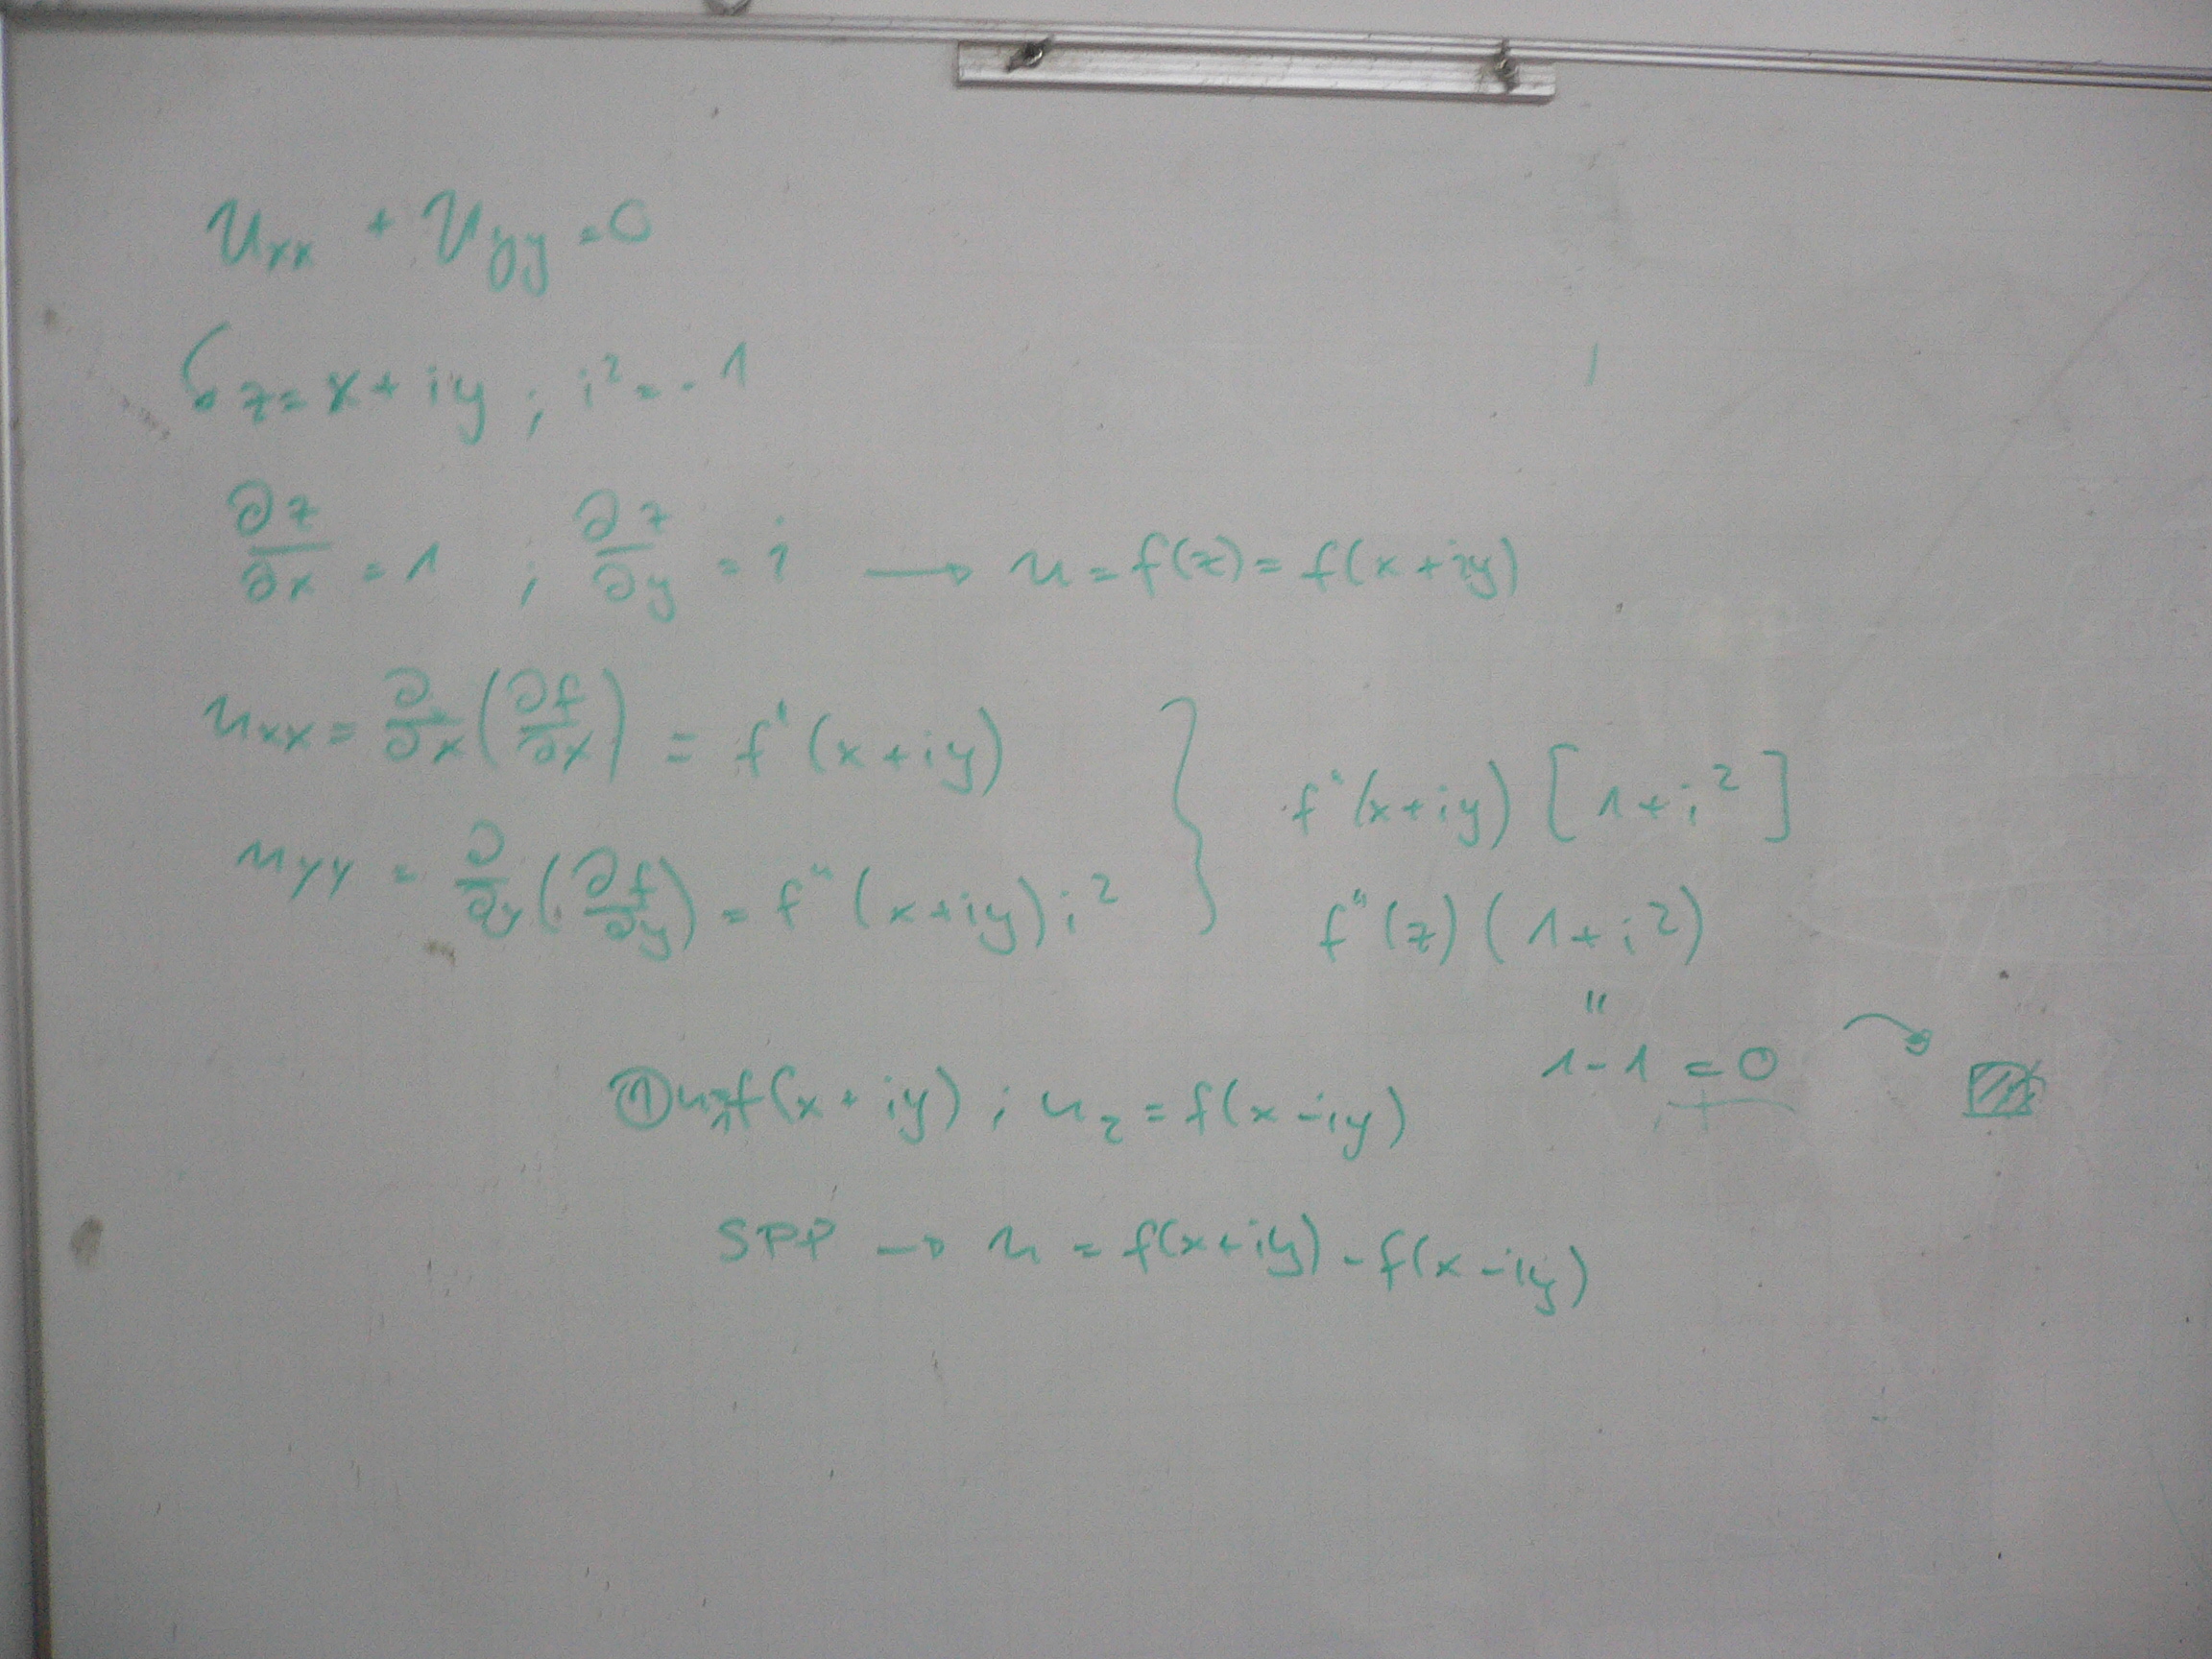 u_xx + u_yy = 0
z = x + iy ; i² = -1
∂z/∂x = 1 ; ∂z/∂y = i → u = f(z) = f(x + iy)
u_xx = ∂/∂x (∂f/∂x) = f'(x + iy)
u_yy = ∂/∂y (∂f/∂y) = f''(x + iy) i²
f''(x + iy) [1 + i²]
f''(z) (1 + i²)
"
1 - 1 = 0
① u₁ = f(x + iy) ; u₂ = f(x - iy)
SPP → u = f(x + iy) - f(x - iy)